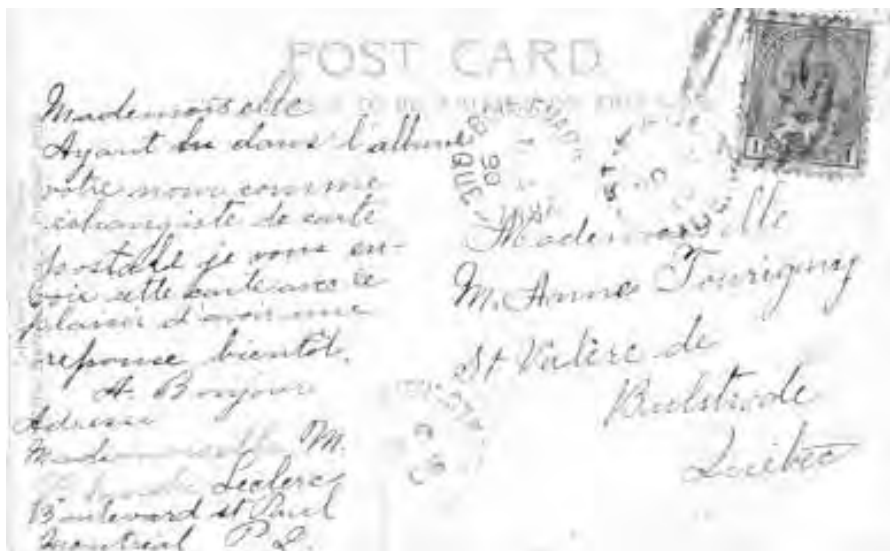 POST CARD
Mademoiselle
Ayant lu dans l'album
votre nom comme
échangiste de carte
postale je vous en-
voie cette carte avec le
plaisir d'avoir une
reponse bientôt.
A. Bonjour
Adresse
Mademoiselle M.
Leclerc
Boulevard st Paul
Montreal P. Q.
Mademoiselle
M. Anne Tourigny
St Valère de
Bulstrode
Québec
1 1